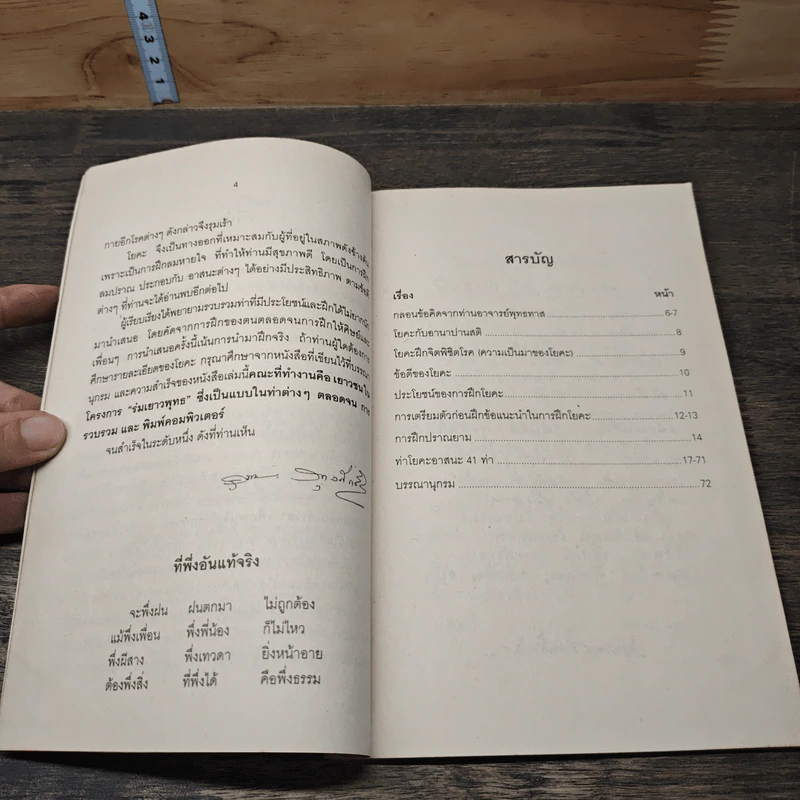 4
3
2
1
4
กายอีกโรคต่างๆ ดังกล่าวจึงรุมเร้า
โยคะ จึงเป็นทางออกที่เหมาะสมกับผู้ที่อยู่ในสภาพดังข้างต้น
เพราะเป็นการฝึกลมหายใจ ที่ทำให้ท่านมีสุขภาพดี โดยเป็นการฝึก
ลมปราณ ประกอบกับ อาสนะต่างๆ ได้อย่างมีประสิทธิภาพ
ต่างๆ ที่ท่านจะได้อ่านพบอีกต่อไป
ผู้เรียบเรียงได้พยายามรวบรวมท่าที่มีประโยชน์และฝึกได้ไม่ยากนัก
มานำเสนอ โดยคัดจากการฝึกของตนตลอดจนการฝึกให้ศิษย์และ
เพื่อนๆ การนำเสนอครั้งนี้เน้นการนำมาฝึกจริง ถ้าท่านผู้ใดต้องการ
ศึกษารายละเอียดของโยคะ กรุณาศึกษาจากหนังสือที่เขียนไว้ที่บรรณา
นุกรม และความสำเร็จของหนังสือเล่มนี้คณะที่ทำงานคือ เยาวชนใน
โครงการ "ร่มเยาวพุทธ" ซึ่งเป็นแบบในท่าต่างๆ ตลอดจน การ
รวบรวม และ พิมพ์คอมพิวเตอร์
จนสำเร็จในระดับหนึ่ง ดังที่ท่านเห็น
ที่พึ่งอันแท้จริง
จะพึ่งฝน ฝนตกมา ไม่ถูกต้อง
แม้พึ่งเพื่อน พึ่งพี่น้อง ก็ไม่ไหว
พึ่งผีสาง พึ่งเทวดา ยิ่งหน้าอาย
ต้องพึ่งสิ่ง ที่พึ่งได้ คือพึ่งธรรม
สารบัญ
เรื่อง หน้า
กลอนข้อคิดจากท่านอาจารย์พุทธทาส 6-7
โยคะกับอานาปานสติ 8
โยคะฝึกจิตพิชิตโรค (ความเป็นมาของโยคะ) 9
ข้อดีของโยคะ 10
ประโยชน์ของการฝึกโยคะ 11
การเตรียมตัวก่อนฝึกข้อแนะนำในการฝึกโยคะ 12-13
การฝึกปราณยาม 14
ท่าโยคะอาสนะ 41 ท่า 17-71
บรรณานุกรม 72